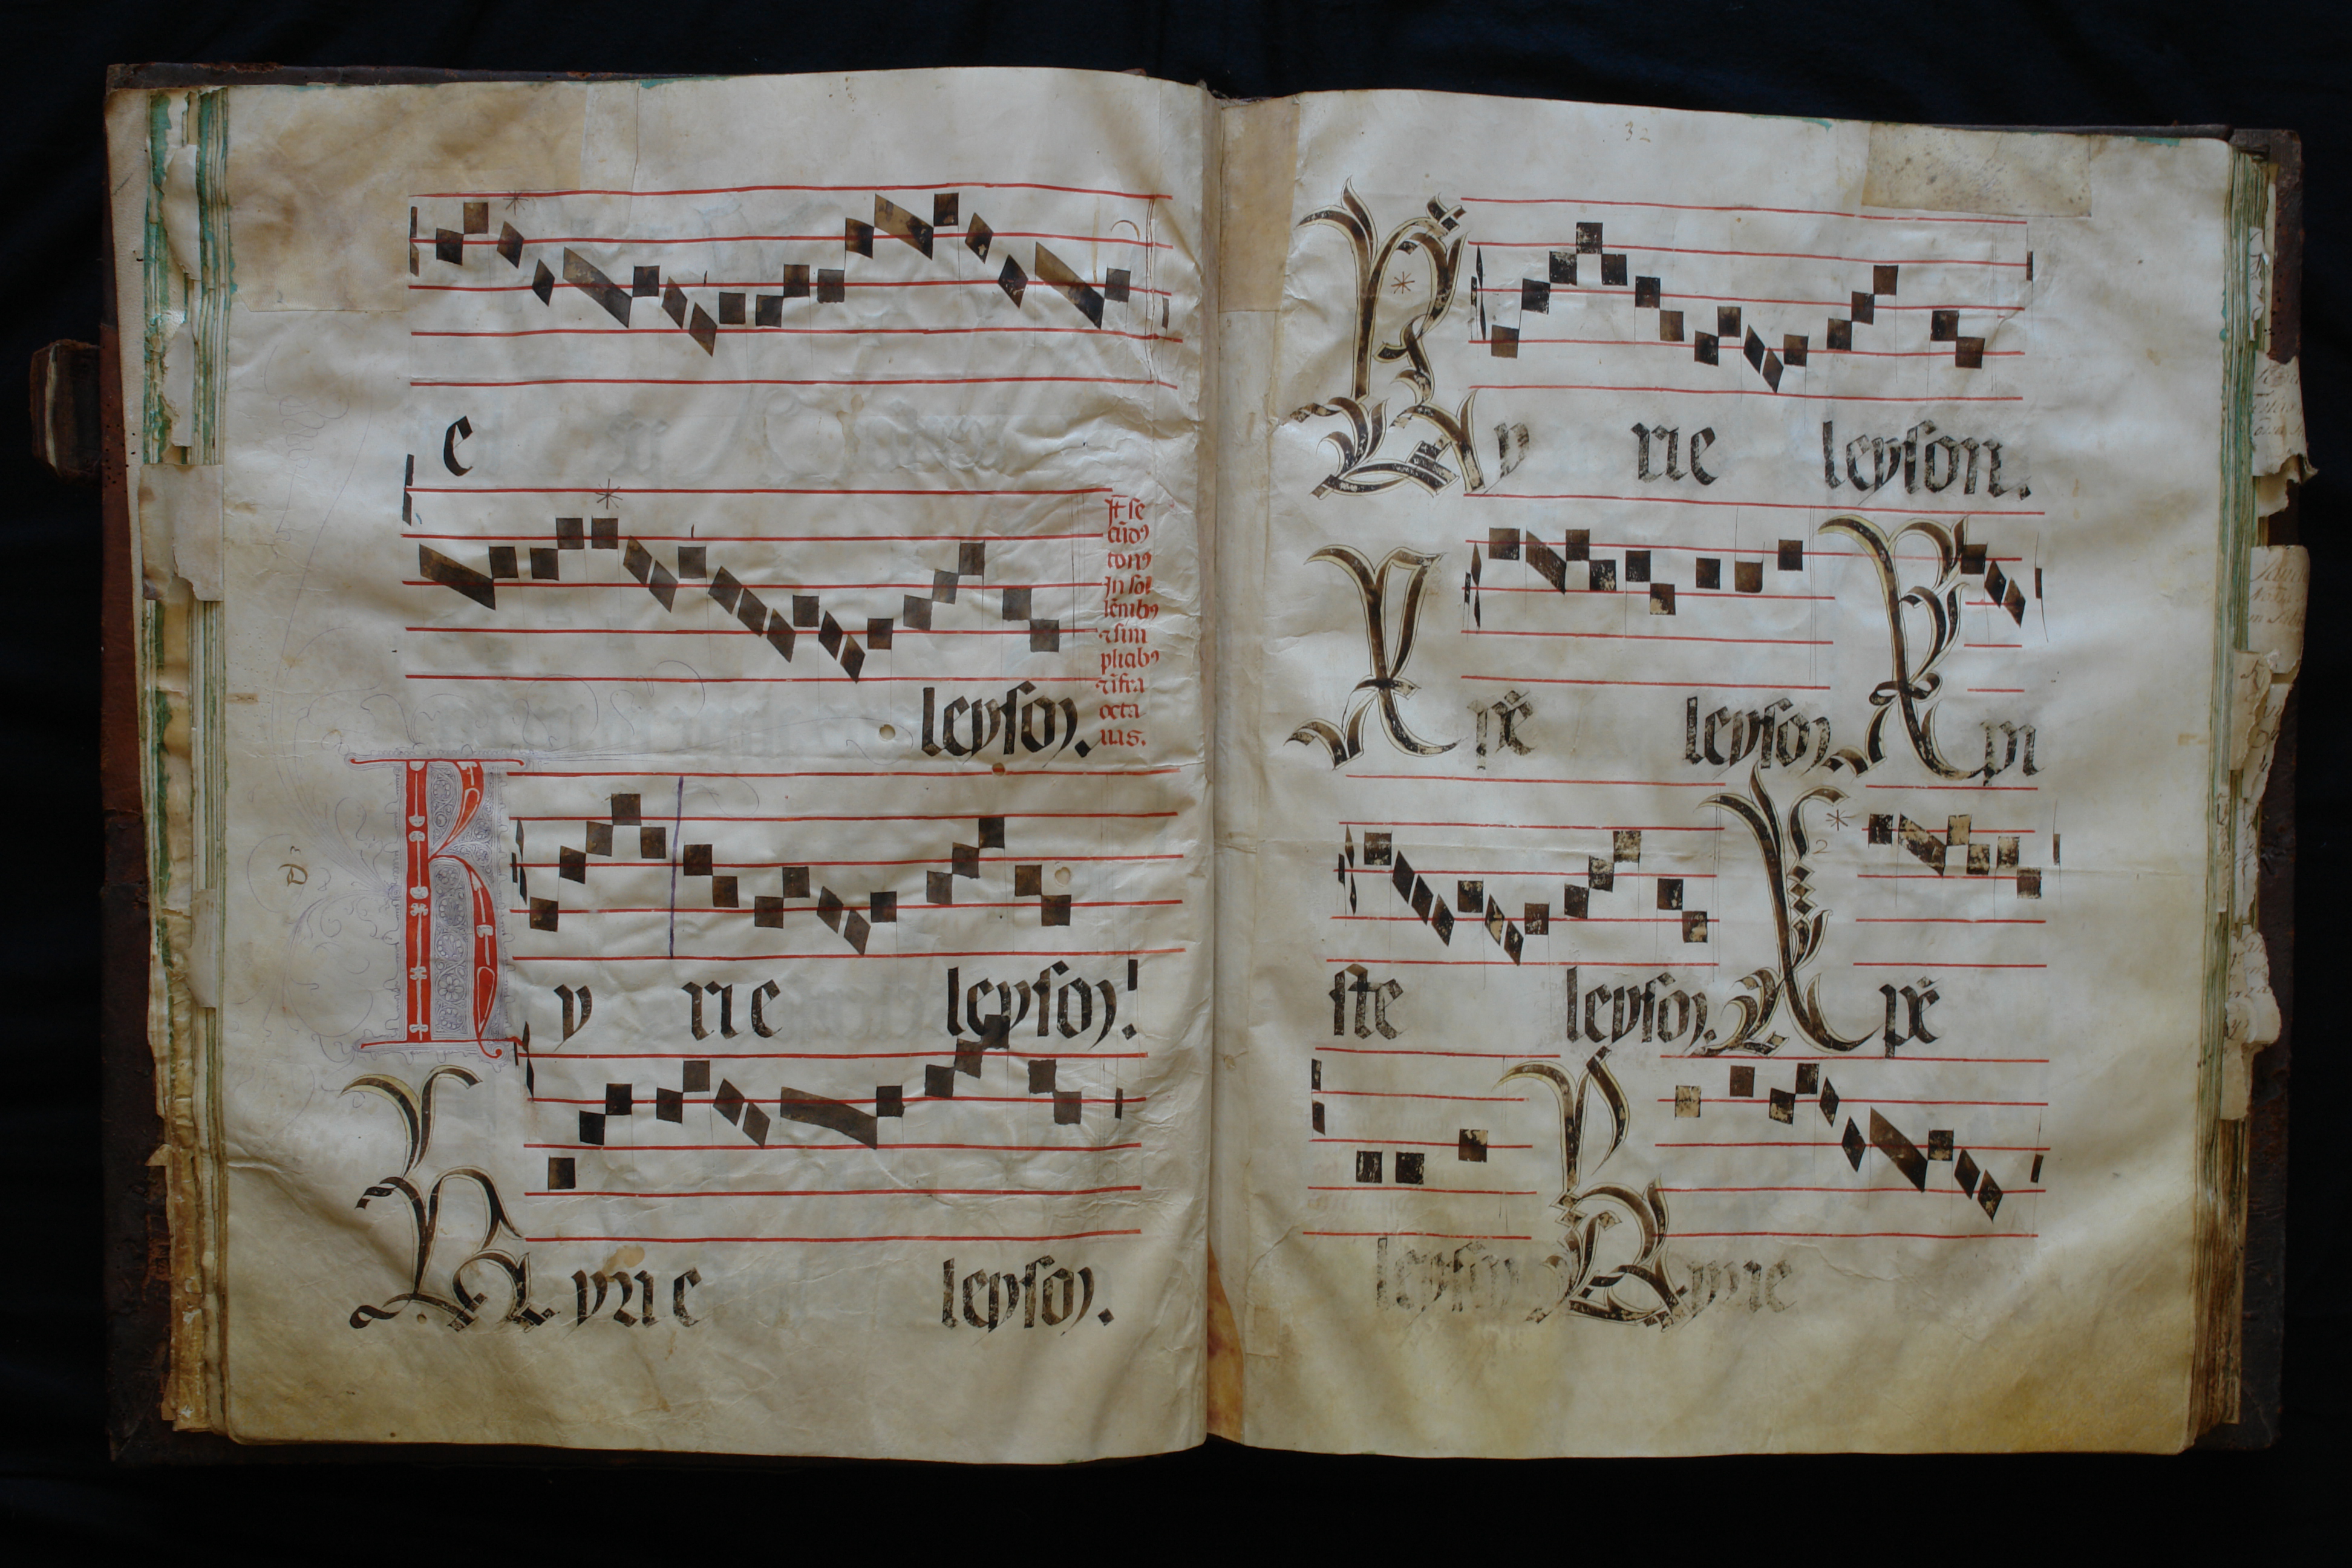 e
leyson.
Jt se
cūdꝰ
tonꝰ
Jn sol
lēnibꝰ
⁊ sim
plicibꝰ
⁊ īfra
octa
uas.
Ky rie leyson.
Kyrie leyson.
32
Ky rie leyson.
Xp̄e leyson. Xpi
ste leyson. Xp̄e
leyson Kyrie